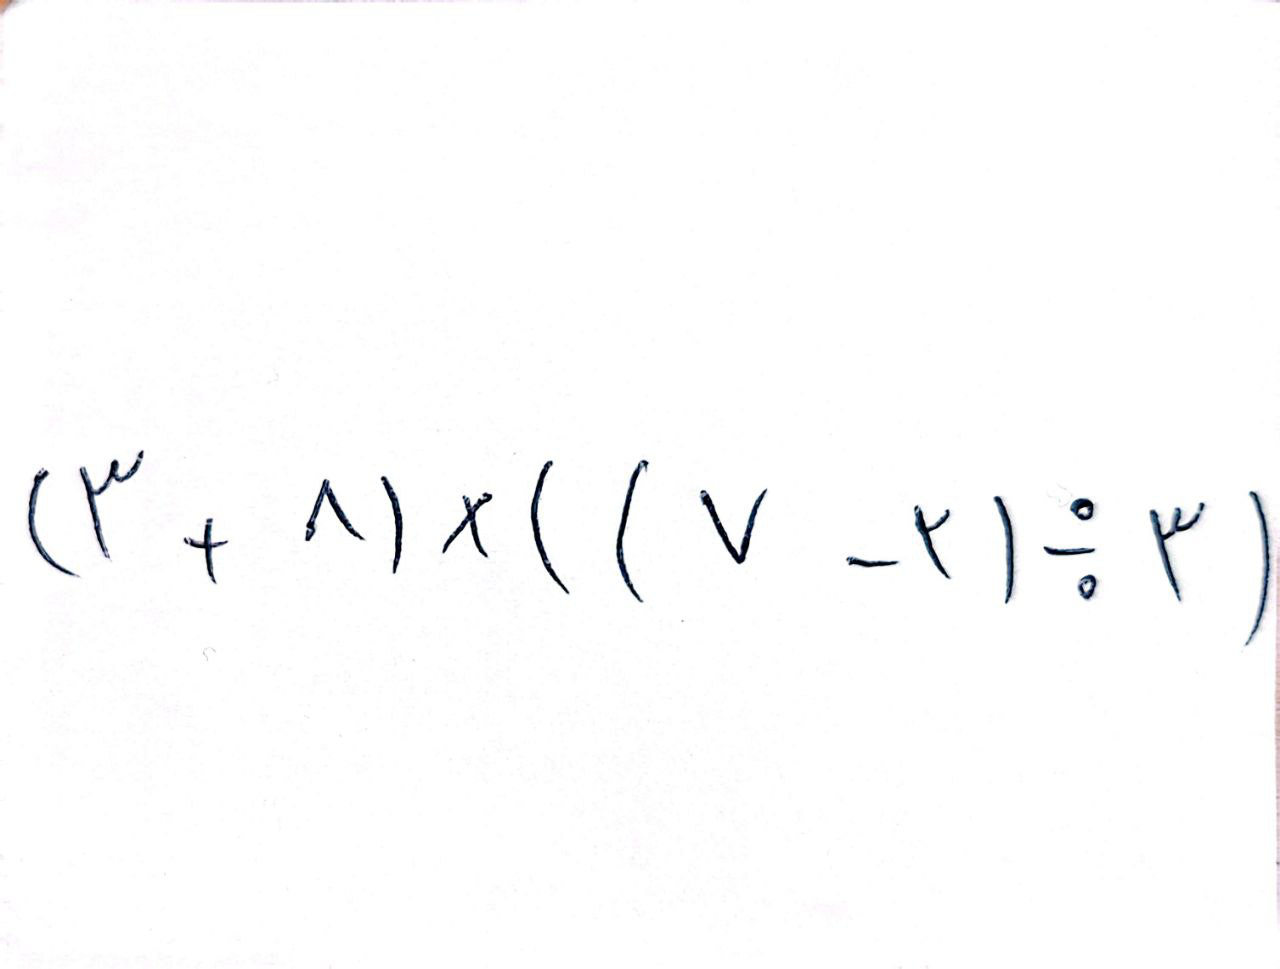 (۳ + ۸) × ((۷ - ۲) ÷ ۳)